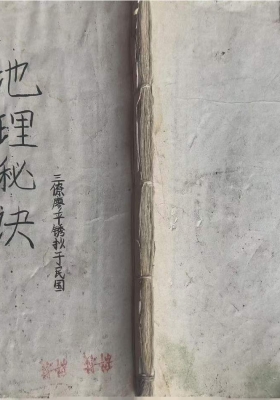 地理秘诀
三僚廖平锈抄于民国